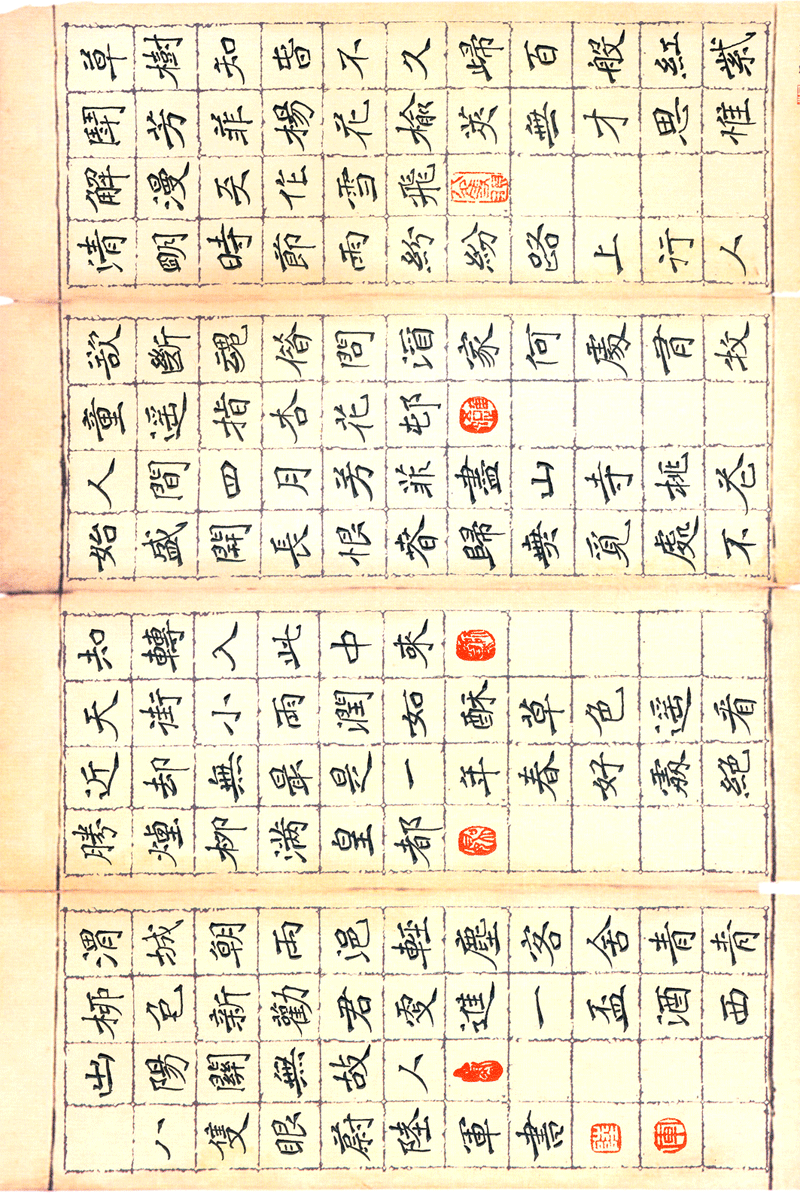 草樹知旾不久歸百般紅紫
鬪芳菲楊花榆莢無才思惟
解漫天作雪飛
清明時節雨紛紛路上行人
欲斷魂借問酒家何處有牧
童遥指杏花邨
人間四月芳菲盡山寺桃花
始盛開長恨春歸無覓處不
知轉入此中來
天街小雨潤如酥草色遥看
近却無最是一年春好處絕
勝煙柳滿皇都
渭城朝雨浥輕塵客舍青青
柳色新勸君更進一盃酒西
出陽關無故人
八隻眼蔚陸軍書